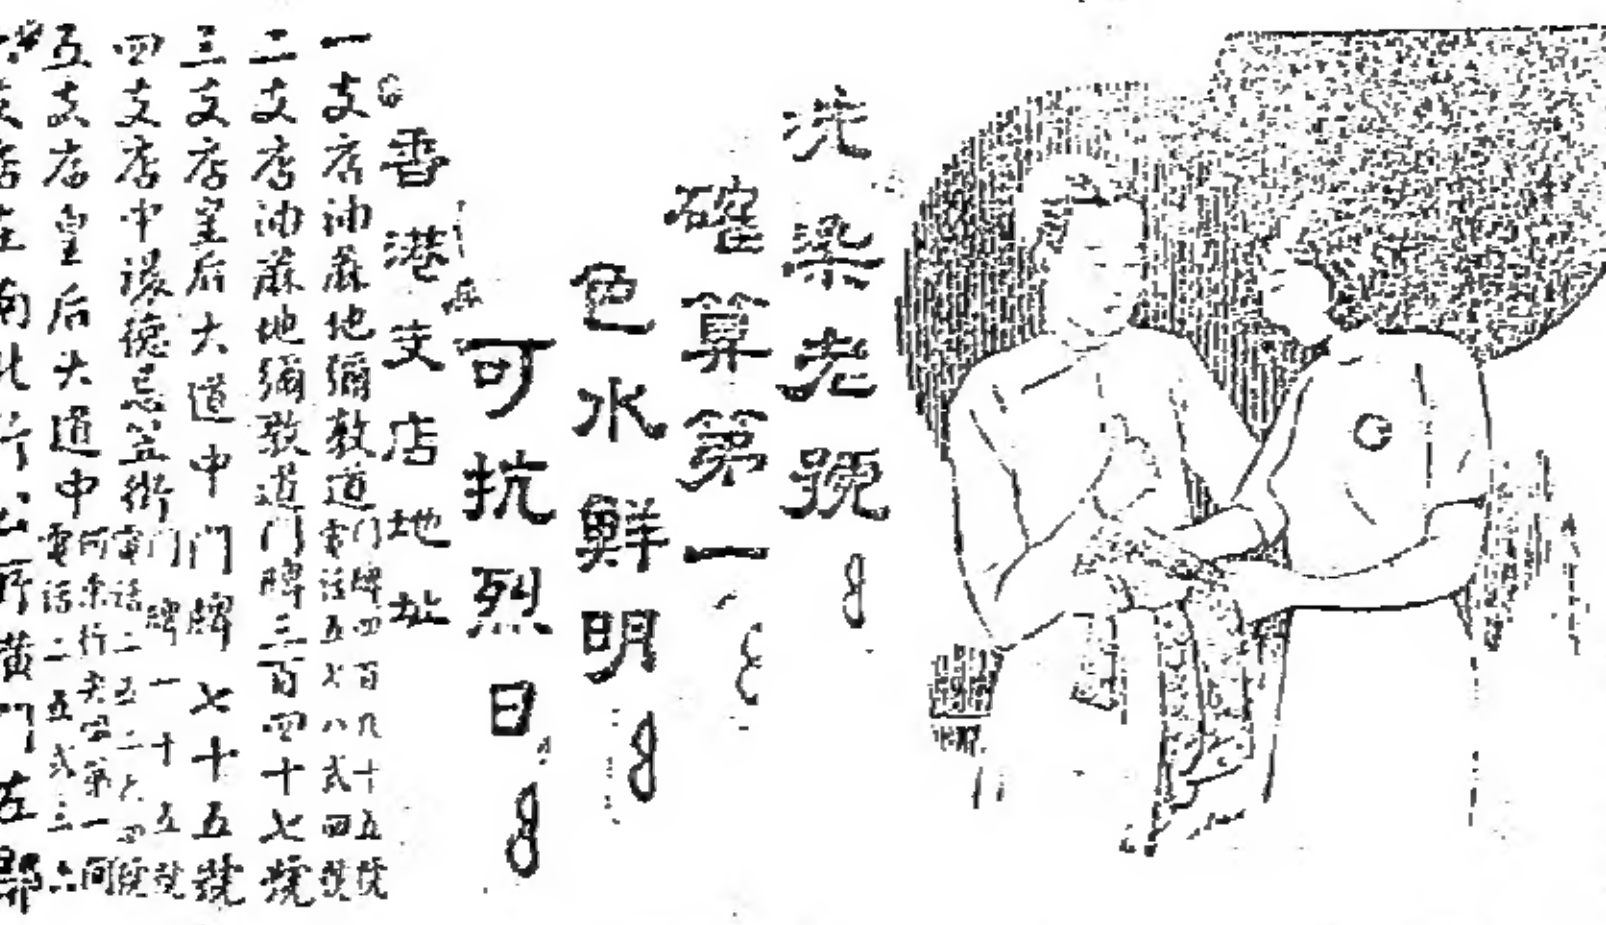 洗染老號
確算第一
色水鮮明
可抗烈日
香港支店地址
一支店油蔴地彌敦道門牌四百九十五號電話五七八弍四號
二支店油蔴地彌敦道門牌三百四十七號
三支店皇后大道中門牌七十五號
四支店中環德忌笠街門牌一十五號電話二五二六四號
五支店皇后大道中 行 第一間電話二五弍三六
支店在南北行公所 門左鄰